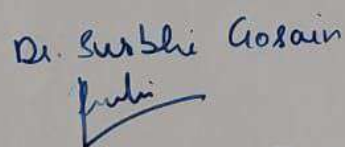 Dr. Surbhi Gosain